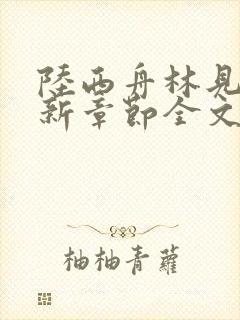 陸西舟林見
新章節全文
柚柚青蘿